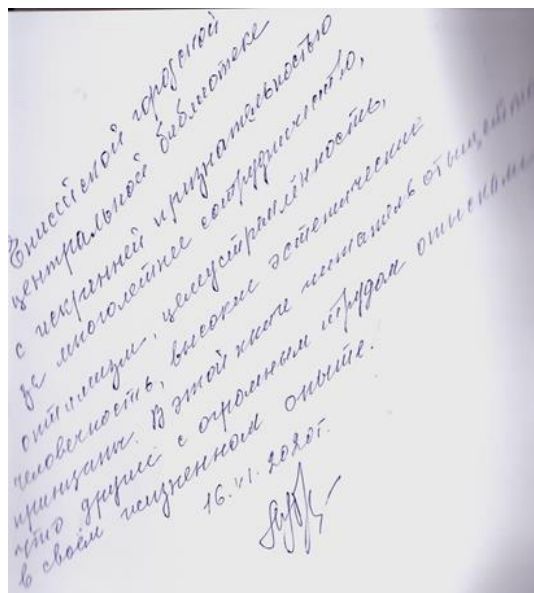 Енисейской городской
центральной библиотеке
с искренней признательностью
за многолетнее сотрудничество,
оптимизм, целеустремлённость,
человечность, высокие эстетические
принципы. В этой книге читатель отыщет то,
что другие с огромным трудом отыскали
в своём жизненном опыте.
16.VI.2020г.